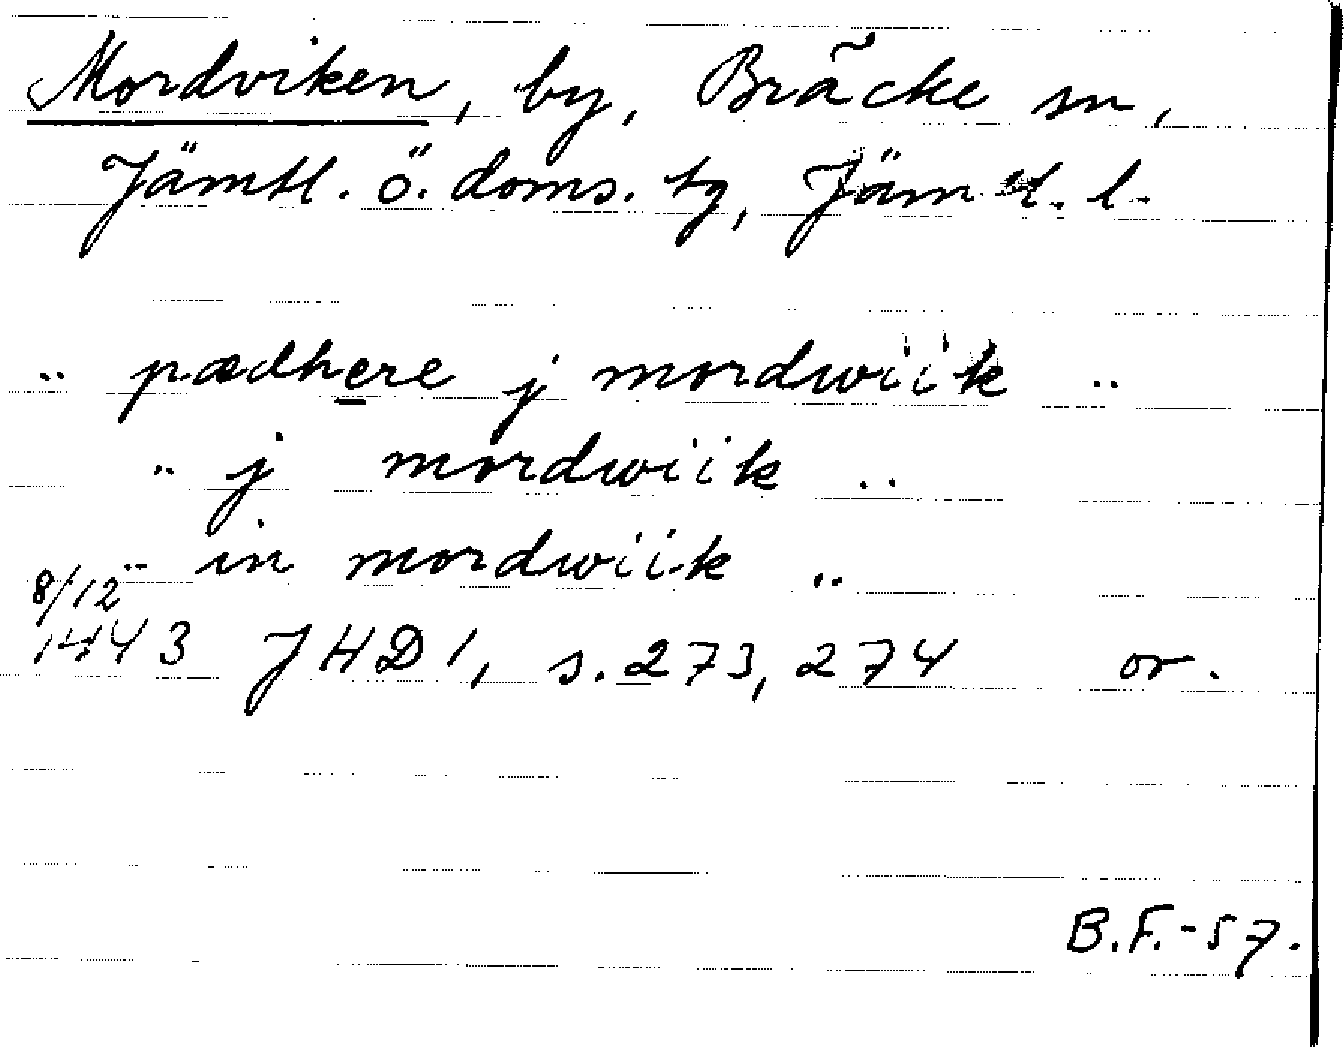 Mordviken, by, Bräcke sn,
Jämtl. ö. doms. tg, Jämtl. l.
.. pædhere j mordwiik ..
.. j mordwiik ..
.. in mordwiik ..
8/12
1443 JHD 1, s. 273, 274 or.
B.F.-57.